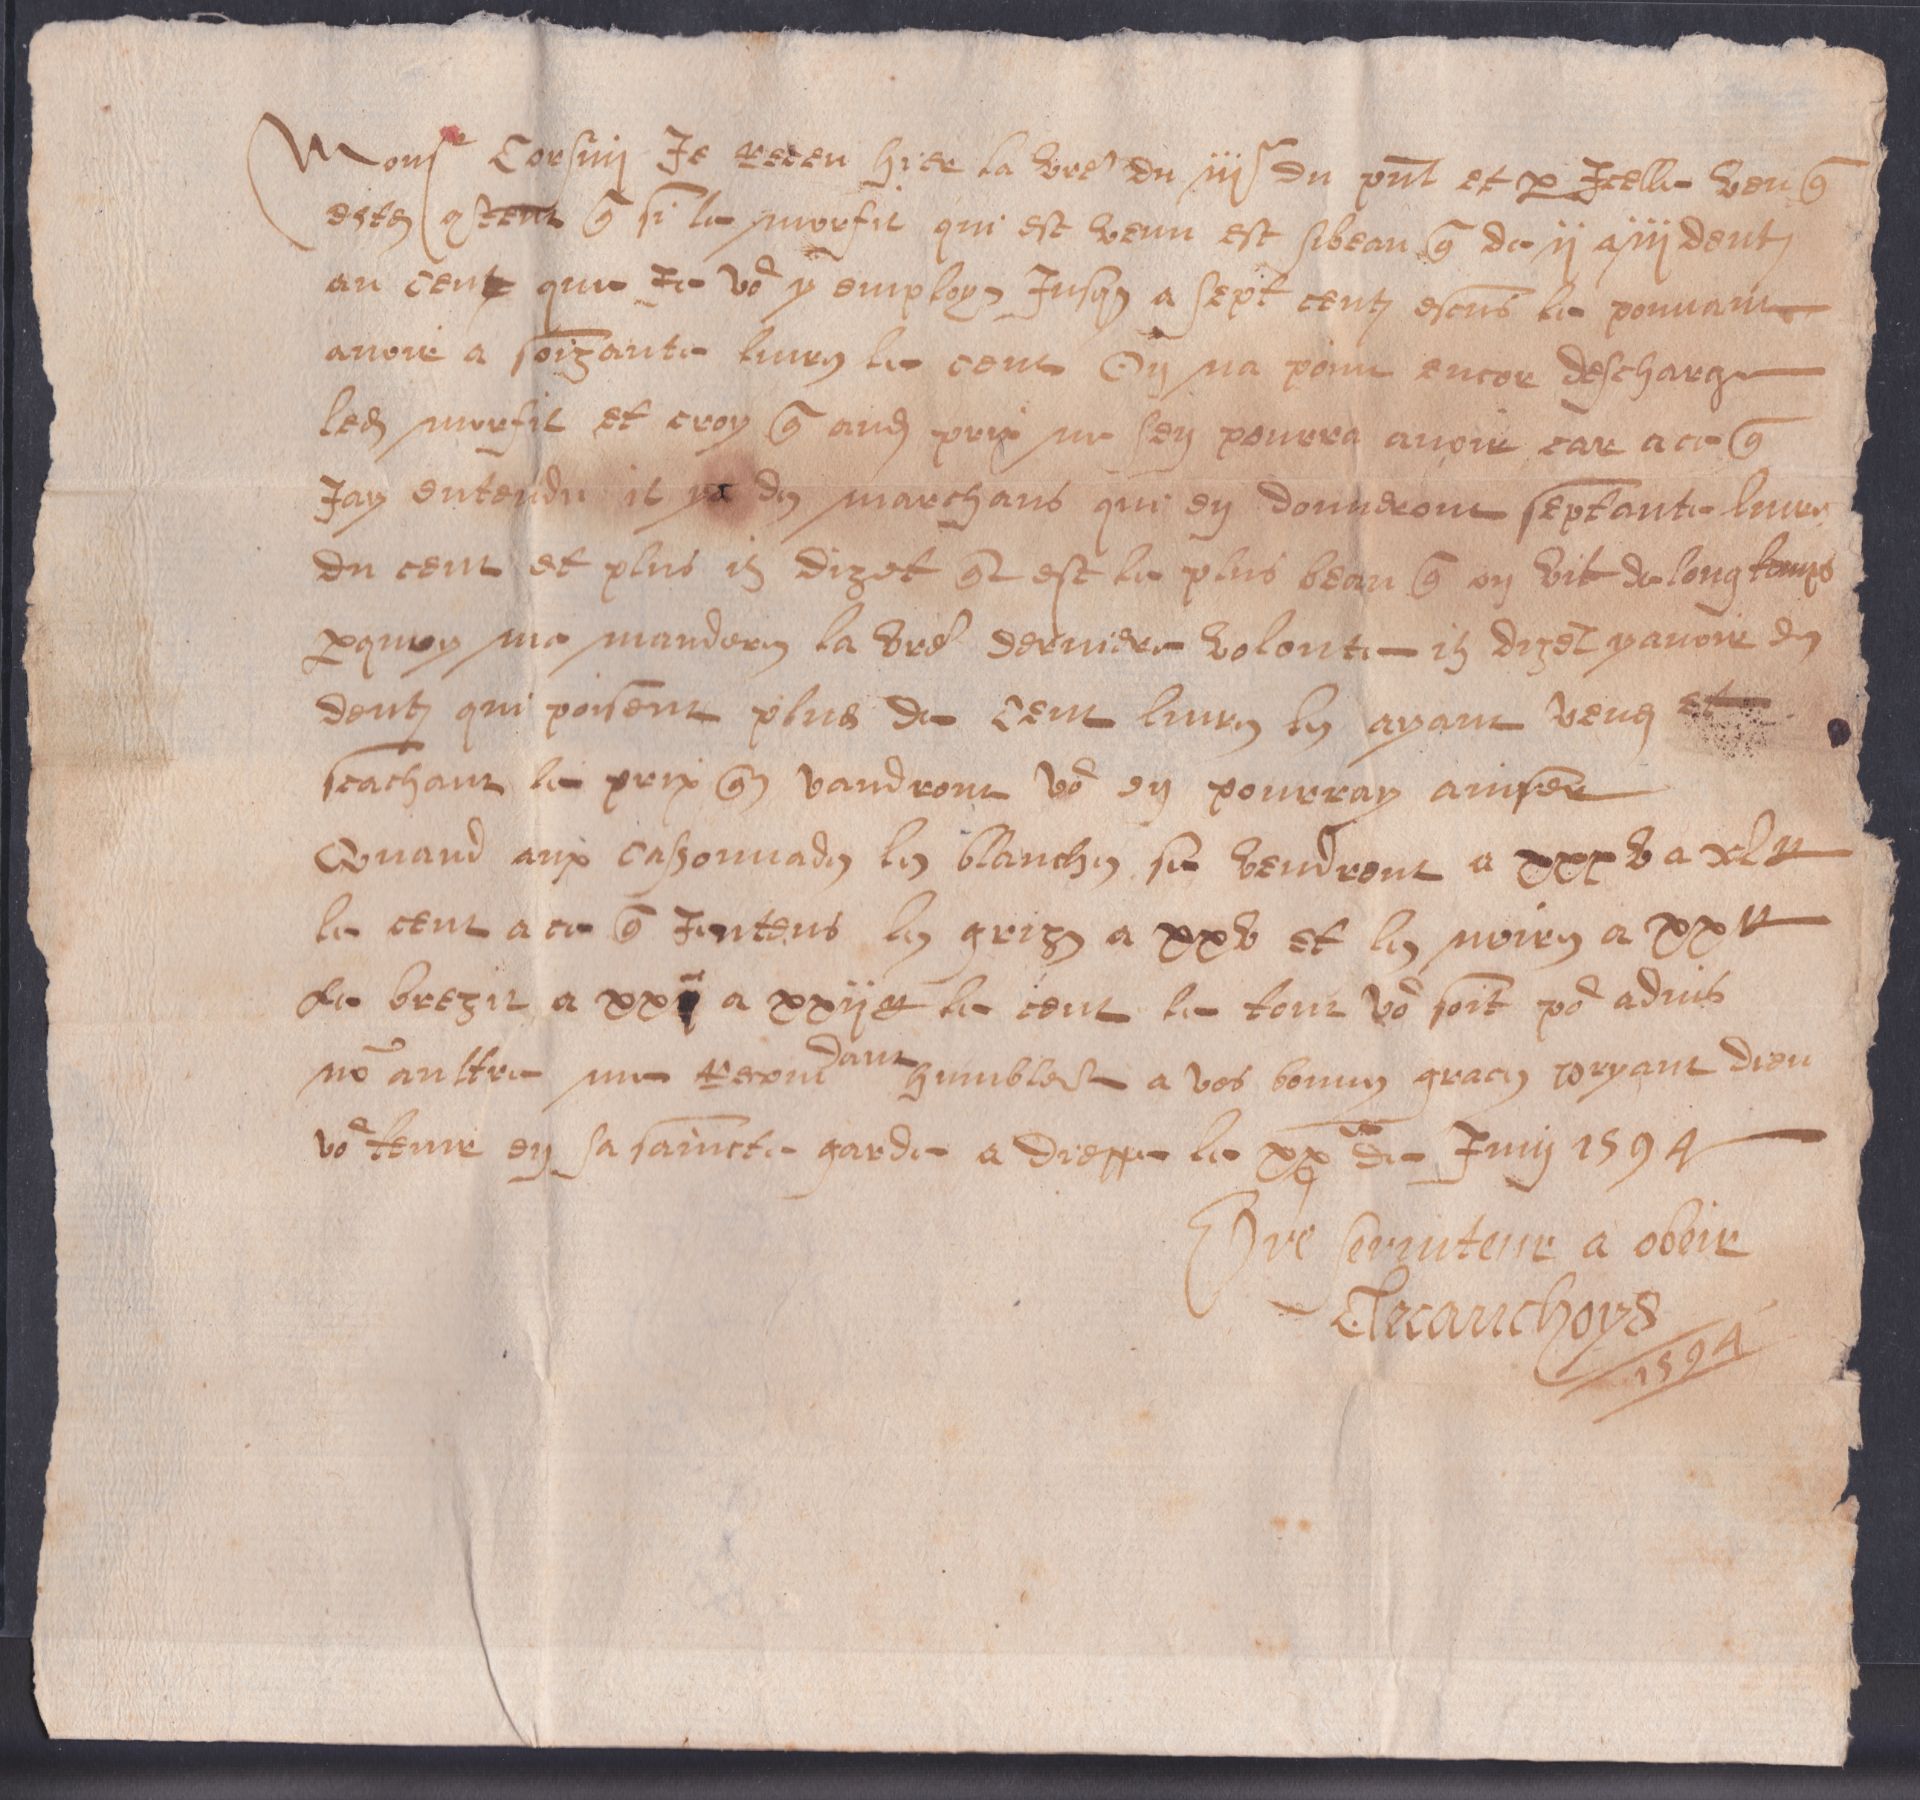 Monsr Corsini Je receu hier la vre du iije du pnt et p Icelle veu q
estes qtent q si le morfil qui est venu est sibeau q de ij a iij dentz
au cent que Je vo y employe Jusqs a sept centz escus le pouvant
avoir a soizante livres le cent On na point encor descharge
led morfil et croy q aud prix ne sen pourra avoir car a ce q
Jay entendu il ya des marchans qui en donneront septante livres
du cent et plus ilz dizet ql est le plus beau q on vit de long temps
pquoy me manderes la vre derniere volonte ilz dizet y avoir des
dentz qui poisent plus de cent livres les ayant veus et
scachant le prix qlz vandront vo en pourray aviser
Quand aux cassonnades les blanches se vendront a xxxv a xl lt
le cent a ce q Jentens les grizes a xxv et les noires a xx lt
Le brezil a xxj a xxij lt le cent le tout vo soit po advis
no aultre me recomdant humblet a vos bonnes graces pryant dieu
vo tenir en sa saincte garde a dieppe le xxe de Juin 1594
Vre serviteur a obeir
Tranchoys
1594